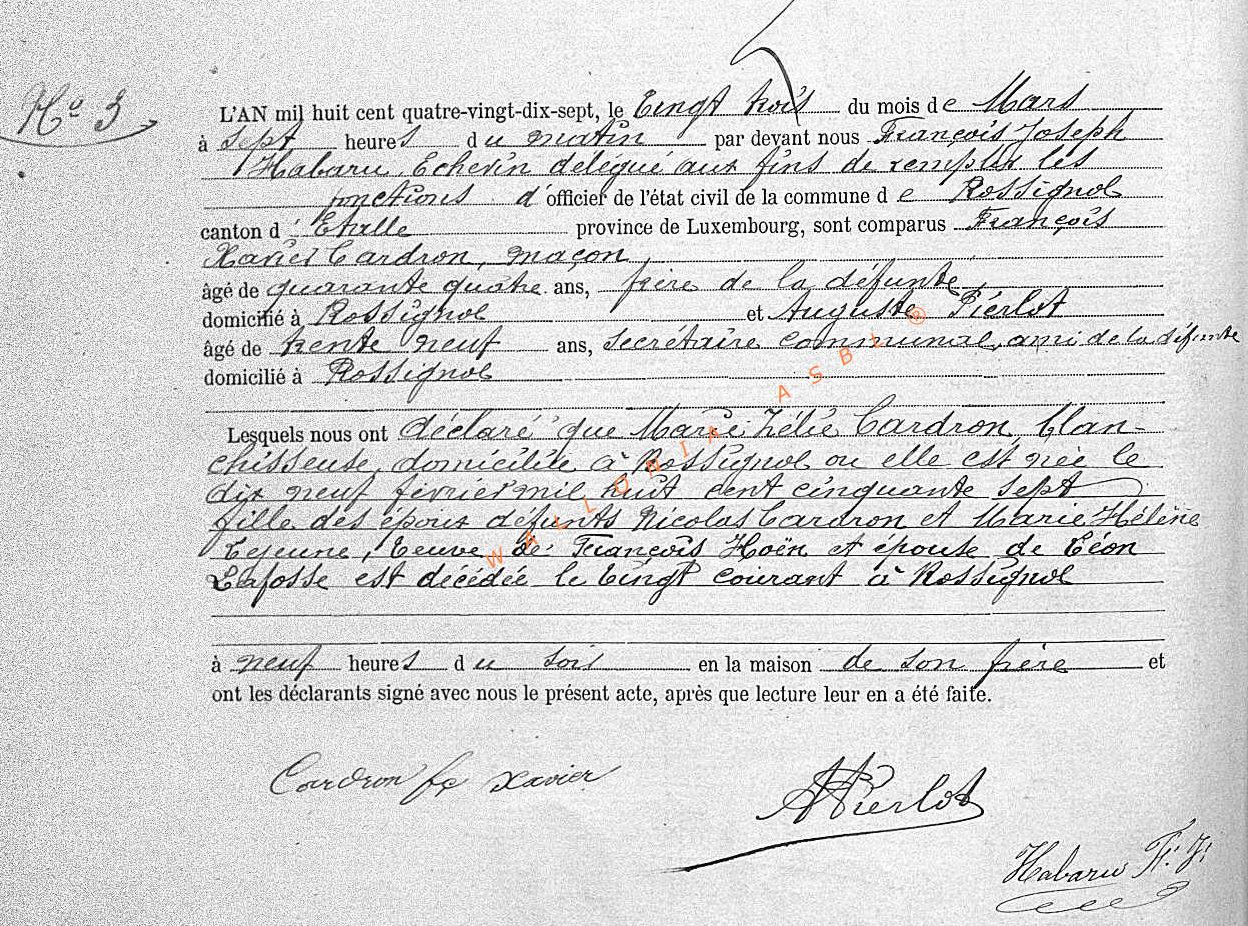 N° 3
L'AN mil huit cent quatre-vingt-dix-sept, le Vingt trois du mois de Mars
à sept heures du matin par devant nous François Joseph
Habaru, Echevin délégué aux fins de remplir les
fonctions d'officier de l'état civil de la commune de Rossignol
canton d'Etalle province de Luxembourg, sont comparus François
Xavier Cardron, maçon
âgé de quarante quatre ans, frère de la défunte
domicilié à Rossignol et Auguste Pierlot
âgé de trente neuf ans, secrétaire communal, ami de la défunte
domicilié à Rossignol
Lesquels nous ont déclaré que Marie Zélie Cardron, blan-
chisseuse, domiciliée à Rossignol ou elle est née le
dix neuf février mil huit cent cinquante sept
fille des époux défunts Nicolas Cardron et Marie Hélène
Lejeune, Veuve de François Hoën et épouse de Léon
Lafosse est décédée le Vingt courant à Rossignol
à neuf heures du soir en la maison de son frère et
ont les déclarants signé avec nous le présent acte, après que lecture leur en a été faite.
Cardron fç xavier
APierlot
Habaru F. J.
WALLONIA ASBL ®